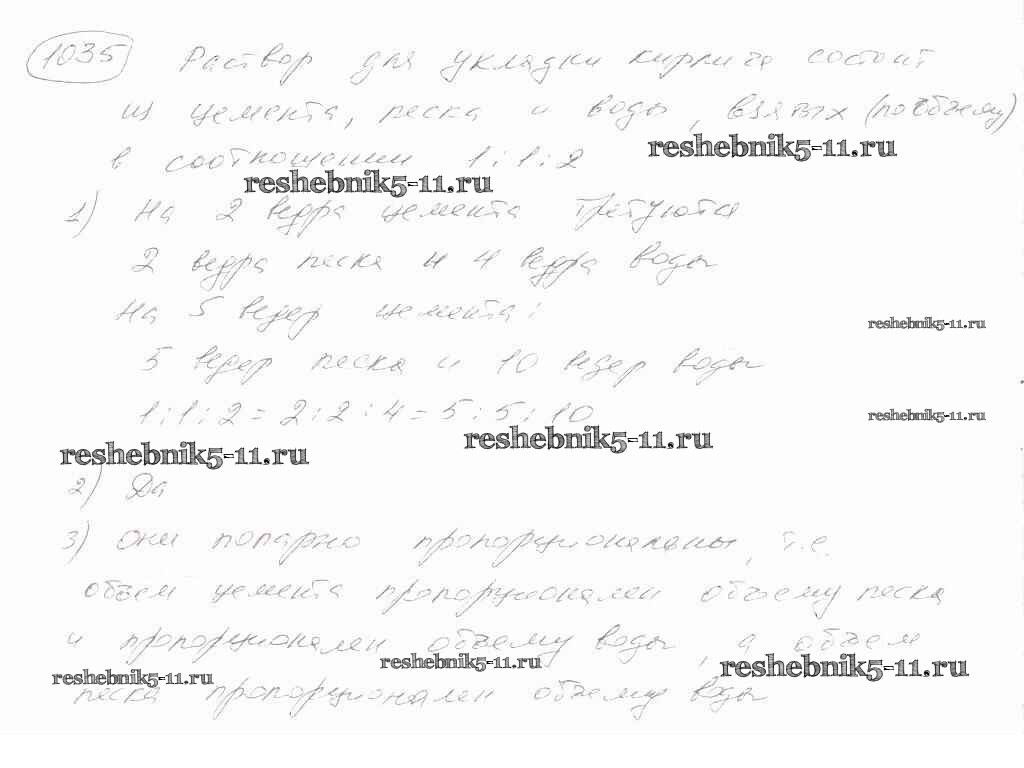 1035 Раствор для укладки кирпича состоит
из цемента, песка и воды, взятых (по объему)
reshebnik5-11.ru
в соотношении 1:1:2
reshebnik5-11.ru
1) На 2 ведра цемента требуются
2 ведра песка и 4 ведра воды
На 5 ведер цемента:
reshebnik5-11.ru
5 ведер песка и 10 ведер воды
1:1:2 = 2:2:4 = 5:5:10
reshebnik5-11.ru
reshebnik5-11.ru
reshebnik5-11.ru
2) Да
3) Они попарно пропорциональны, т.е.
объем цемента пропорционален объему песка
и пропорционален объему воды, а объем
reshebnik5-11.ru
reshebnik5-11.ru
reshebnik5-11.ru
песка пропорционален объему воды